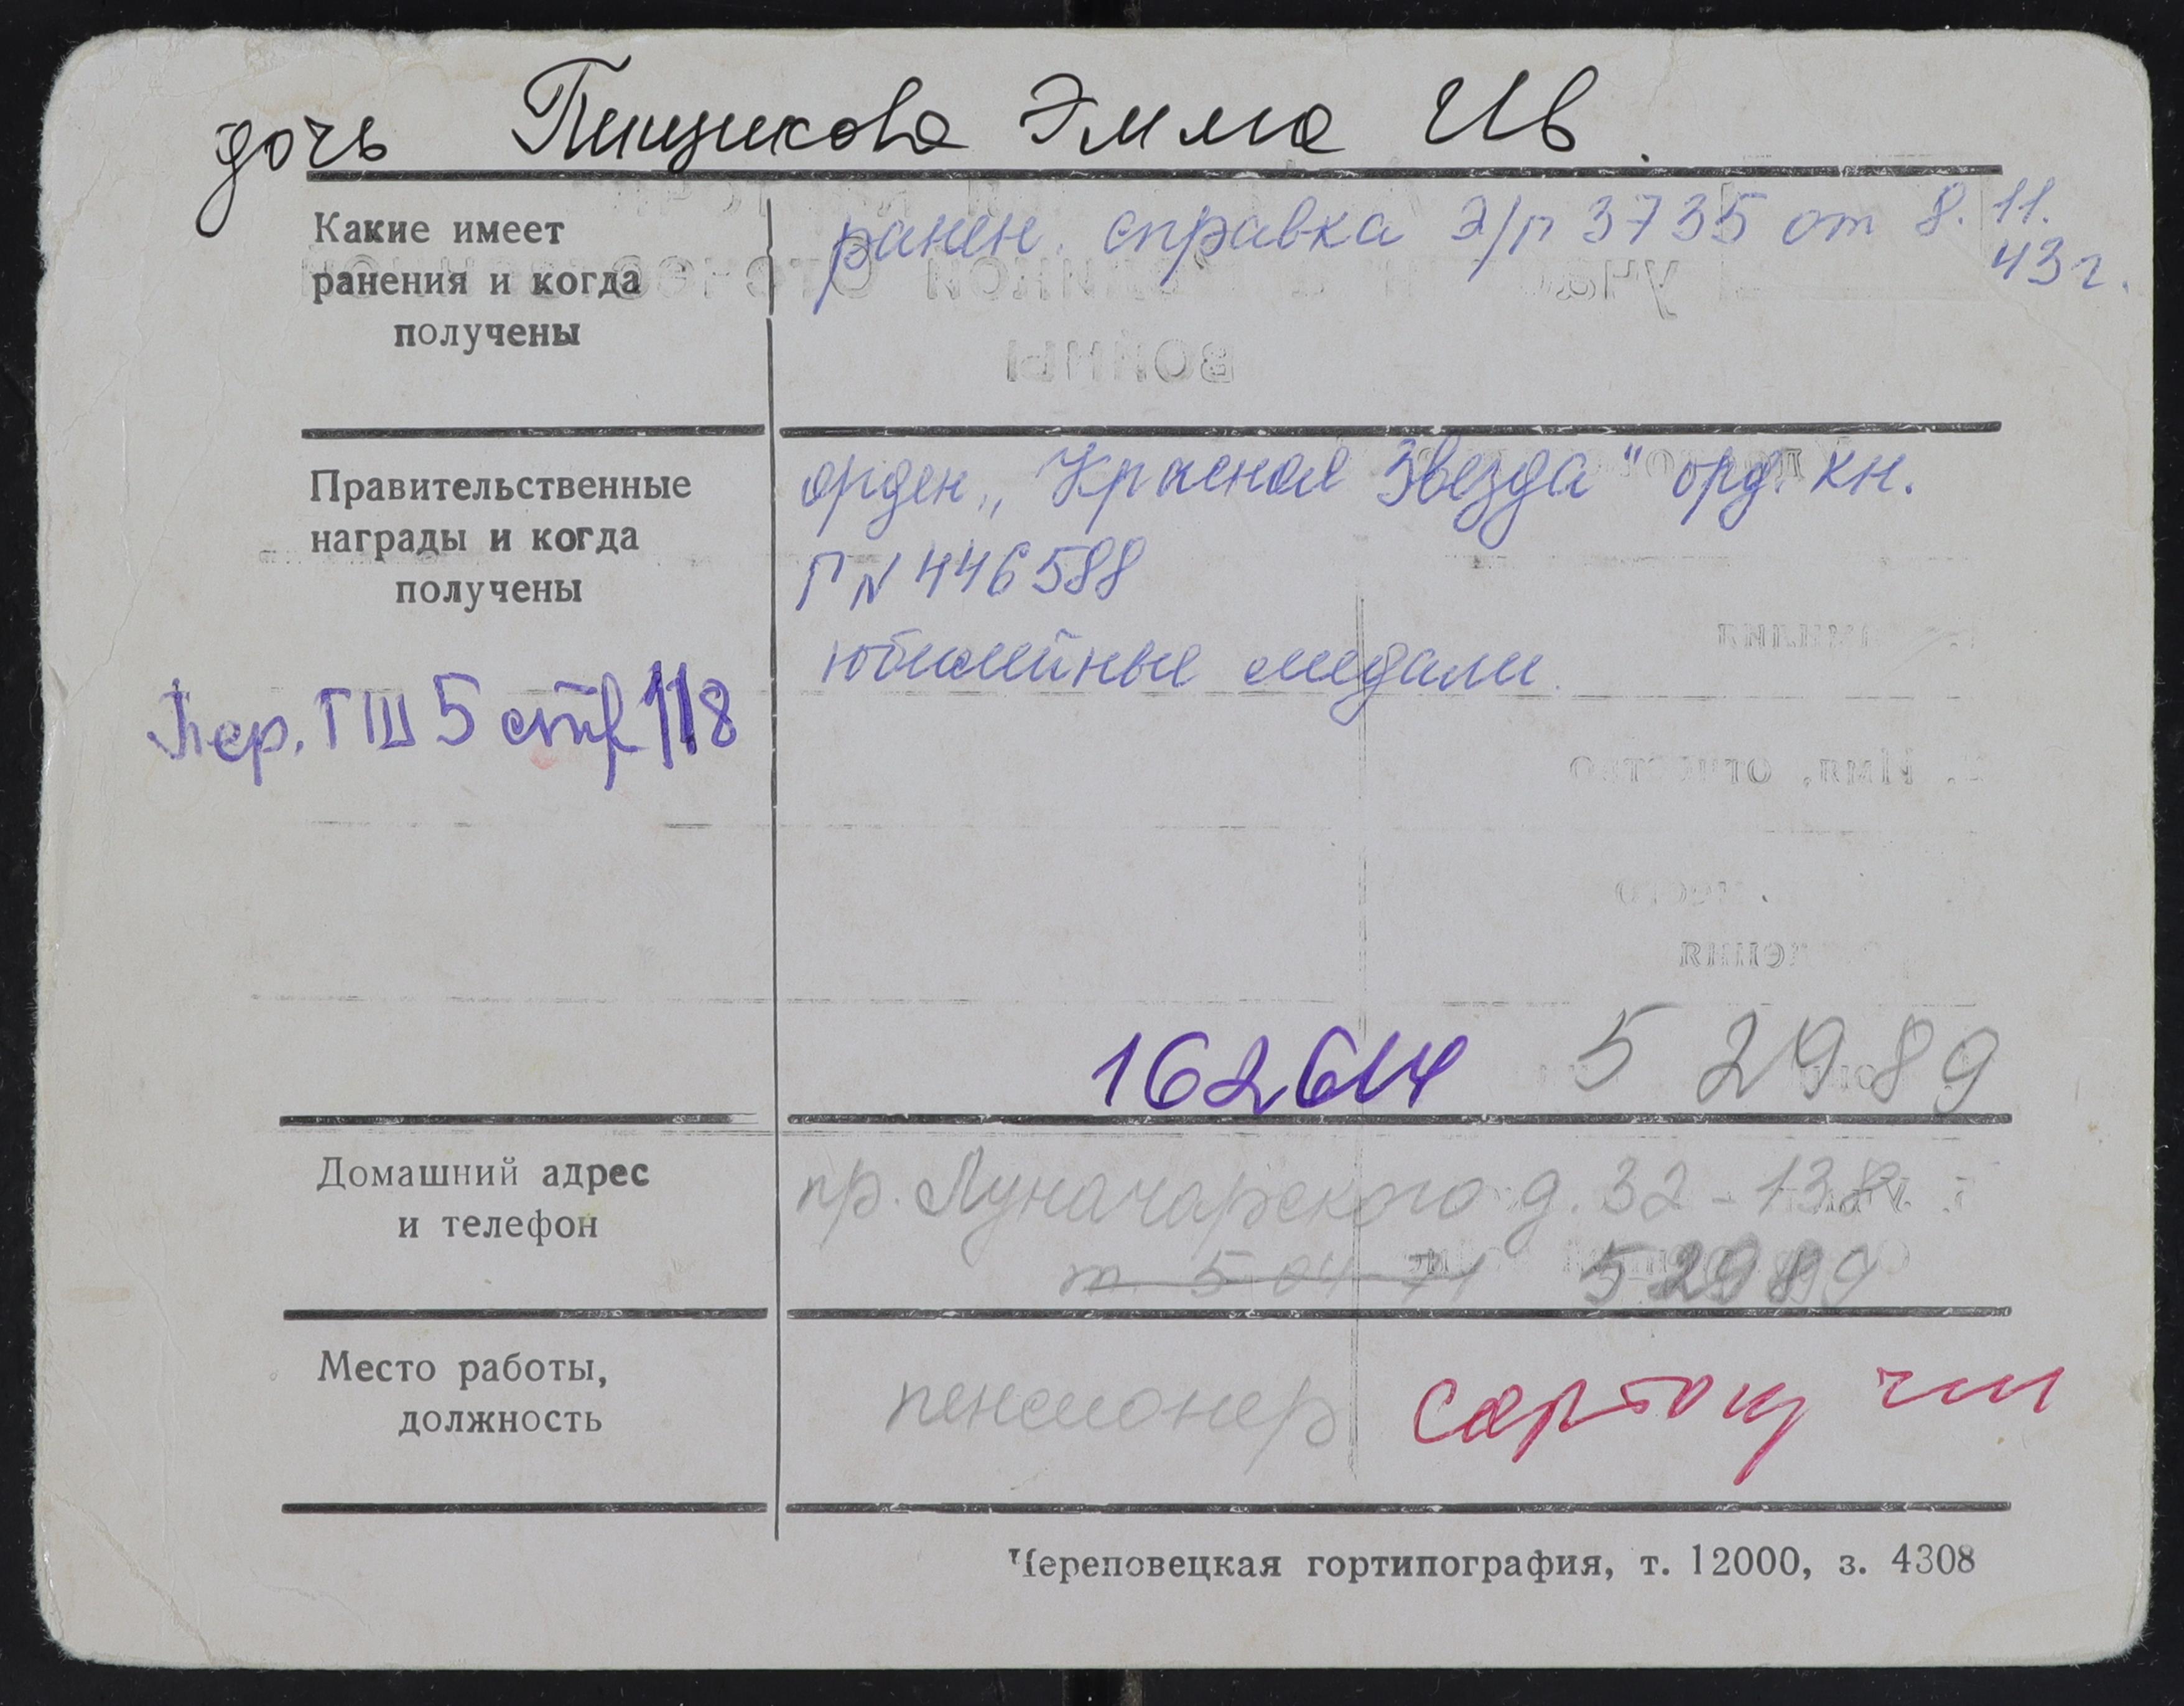 дочь Пищикова Эмма Ив.
Какие имеет
ранения и когда
получены
ранен. справка э/г 3735 от 8.11.
43г.
Правительственные
награды и когда
получены
орден „Красная Звезда" орд. кн.
Г N 446588
юбилейные медали
Пер. ГШ 5 стр 118
162614 5 2989
Домашний адрес
и телефон
пр. Луначарского д. 32 - 138
т. 5 04 71 5 2989
Место работы,
должность
пенсионер
Череповецкая гортипография, т. 12000, з. 4308